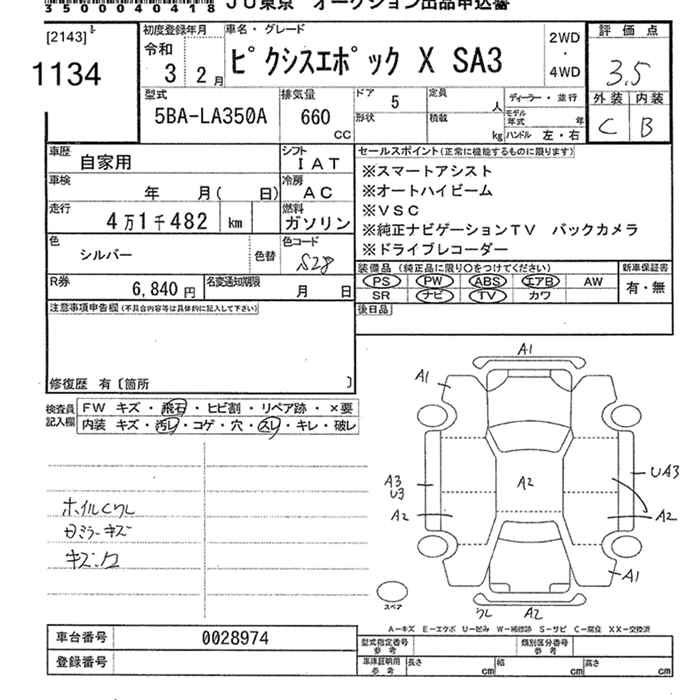 35000040418 JU東京 オークション出品申込書
[2143]
1134
初度登録年月
令和
3年 2月
車名・グレード
ピクシスエポック X SA3
2WD
・
4WD
評価点
3.5
外装 内装
C B
型式
5BA-LA350A
排気量
660
cc
ドア 5
形状
定員 人
積載 kg
ディーラー・並行
モデル年式 年
ハンドル 左・右
車歴
自家用
シフト
IAT
車検
年 月( 日)
冷房
AC
走行
4万1千482 km
燃料
ガソリン
色
シルバー
色替
色コード
S28
R券
6,840円
名変通知期限
月 日
セールスポイント(正常に機能するものに限ります)
※スマートアシスト
※オートハイビーム
※VSC
※純正ナビゲーションTV バックカメラ
※ドライブレコーダー
装備品(純正品に限り○をつけてください)
PS PW ABS エアB AW
SR ナビ TV カワ
新車保証書
有・無
後日品
注意事項申告欄(不具合内容等は具体的に記入して下さい)
修復歴 有〔箇所 〕
検査員記入欄
FW キズ・飛石・ヒビ割・リペア跡・×要
内装 キズ・汚レ・コゲ・穴・スレ・キレ・破レ
A1
A1
A3
U3
A2
A2
UA3
A2
A1
クレ A2
スペア
A-キズ E-エクボ U-凹み W-補修跡 S-サビ C-腐食 XX-交換済
車台番号 0028974
登録番号
型式指定番号
参考
類別区分番号
参考
車庫証明用
参考
長さ cm
幅 cm
高さ cm